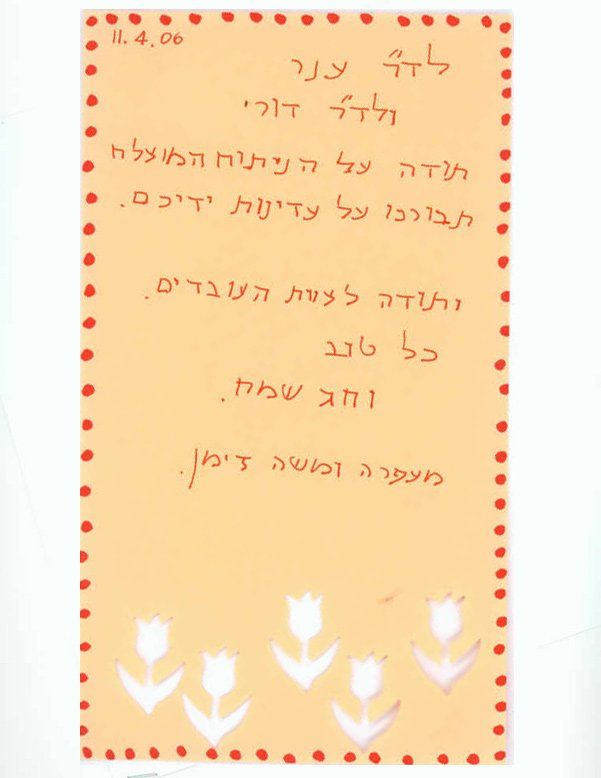 11.4.06
לד״ר ענר
ולד״ר דורי
תודה על הניתוח המוצלח
תבורכו על עדינות ידיכם.
ותודה לצוות העובדים.
כל טוב
וחג שמח.
מעפרה ומשה דימן.